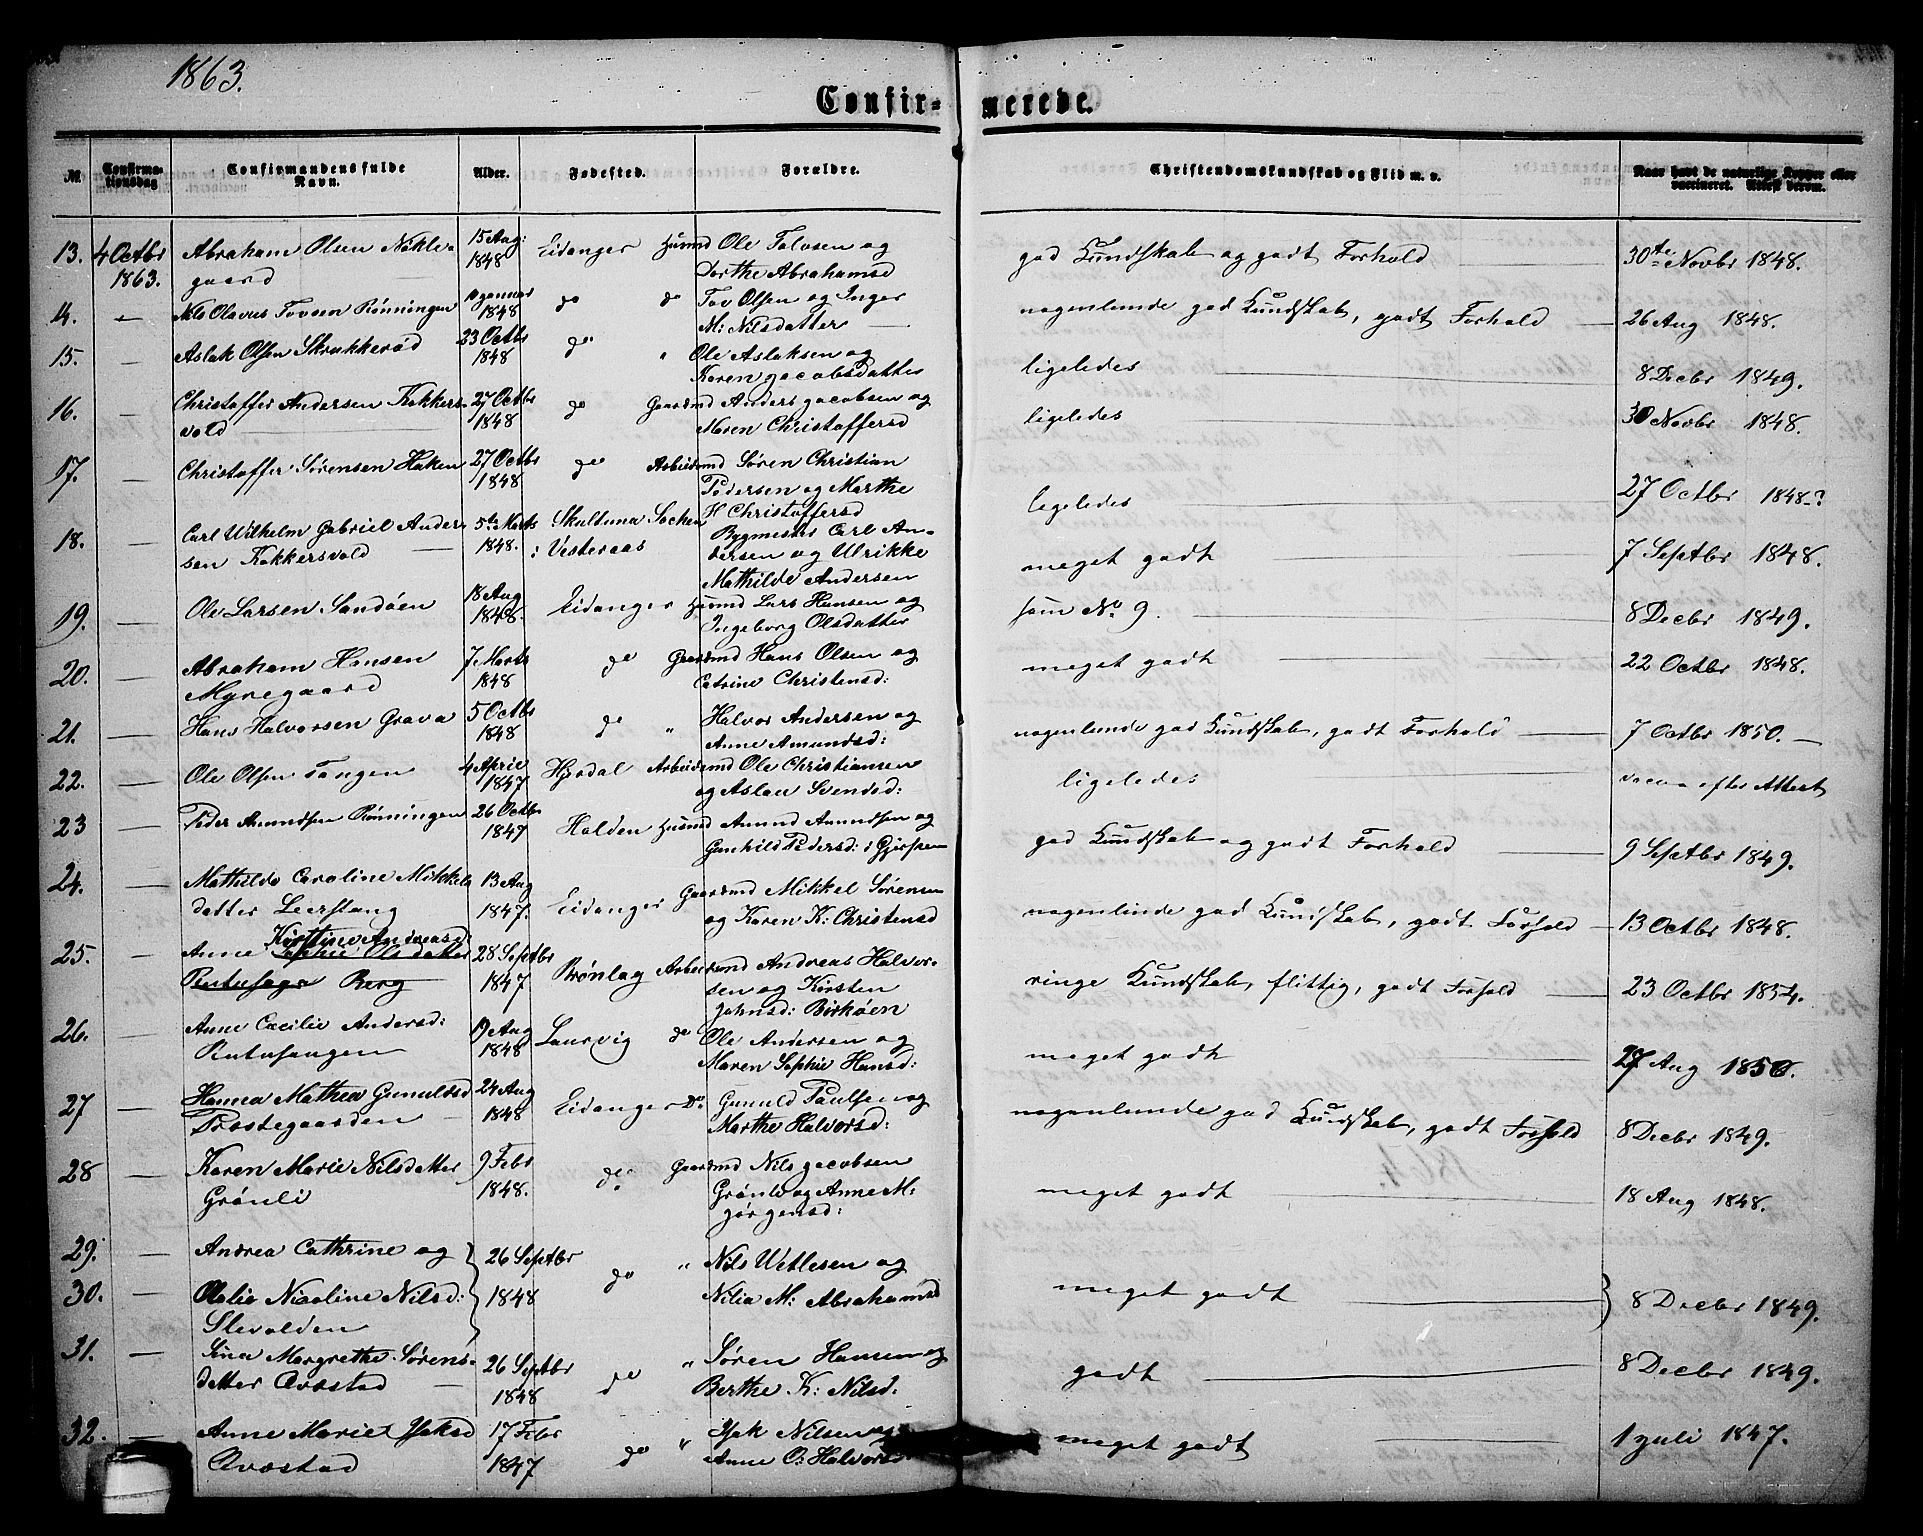 1863.
Confir- merede.
№ Confirma-tionsdag Confirmandens fulde Navn. Alder. Fødested. Forældre. Christendomskundskab og Flid m. v. Naar havt de naturlige Kopper eller vaccineret. Attest derom.
13. 4 Octbr 1863. Abraham Olsen Nøklegaard 15 Aug: 1848 Eidanger Husmd Ole Tolvsen og Dorthe Abrahamsd god Kundskab og godt Forhold 30te Novbr 1848.
14. — Nils Olavus Tovsen Rønningen januar 1848 do do Tov Olsen og Inger M: Nilsdatter nogenlunde god Kundskab, godt Forhold 26 Aug 1848.
15. — Aslak Olsen Skrukkerød 23 Octbr 1848 do " Ole Aslaksen og Karen Jacobsdatter ligeledes 8 Decbr 1849.
16. — Christoffer Andersen Kokkersvold 27 Octbr 1848 do Gaardmd Anders Jacobsen og Maren Christoffersd ligeledes 30 Novbr 1848.
17. — Christoffer Sørensen Haken 27 Octbr 1848 do Arbeidsmd Søren Christian Pedersen og Marthe H Christoffersd ligeledes 27 Octbr 1848-?
18. — Carl Wilhelm Gabriel Andersen Kokkersvold 5te Marts 1848. Skultuna Sochen i Vesteraas Bygmester Carl Andersen og Ulrikke Mathilde Andersen meget godt 7 Septbr 1848.
19. — Ole Larsen Sandøen 18 Aug 1848. Eidanger Husmd Lars Hansen og Ingeborg Olsdatter som No 9. 8 Decbr 1849.
20. — Abraham Hansen Myregaard 7 Marts 1848 do Gaardmd Hans Olsen og Catrine Christensd: meget godt 22 Octbr 1848.
21. — Hans Halvorsen Grava 5 Octbr 1848 do " Halvor Andersen og Anne Amundsd: nogenlunde god Kundskab, godt Forhold 7 Octbr 1850.
22. — Ole Olsen Tangen 4 April 1847 Hjerdal Arbeidsmd Ole Christiansen og Aslau Svendsd: ligeledes vaccn efter Attest
23 — Peder Amundsen Rønningen 26 Octbr 1847 Holden Husmd Amund Amundsen og Gunhild Pedersd: i Gjerpen god Kundskab og godt Forhold 9 Septbr 1849.
24. — Mathilde Caroline Mikkelsdatter Leerstang 13 Aug 1847. Eidanger Gaardmd Mikkel Sørensen og Karen K: Christensd nogenlunde god Kundskab, godt Forhold 13 Octbr 1848.
25. — Anne Sophie Olsdatter Kirstine Andreasd: Berg 28 Septbr 1847 Brønlag Arbeidsmd Andreas Halvorsen og Kirsten Johnsd: Birkøen ringe Kundskab, flittig, godt Forhold 23 Octbr 1854.
26. — Anne Cæcilie Andersd: 19 Aug 1848 Laurvig do Ole Andersen og Maren Sophie Hansd: meget godt 27 Aug 1850.
27 — Hanna Mathea Gunuldsd Præstegaarden 24 Aug 1848 Eidanger Do Gunuld Paulsen og Marthe Halvorsd: nogenlunde god Kundskab, godt Forhold 8 Decbr 1849.
28 — Karen Marie Nilsdatter Grønli 9 Febr 1848. do Gaardmd Nils Jacobsen Grønli og Anne M: Jørgensd: meget godt 18 Aug 1848.
29. — Andrea Cathrine og
30. — Olalia Nicoline Nilsd: Slevolden 26 Septbr 1848 do " Nils Wetlesen og Nilia M: Abrahamsd meget godt 8 Decbr 1849.
31. — Sina Margrethe Sørensdatter Ovrestad 26 Septbr 1848 do " Søren Hansen og Berthe K: Nilsd: godt 8 Decbr 1849.
32. — Anne Marie Isaksd Ovrestad 17 Febr 1847 do " Isak Nilsen og Anne O: Halvorsd meget godt 1 Juli 1847.